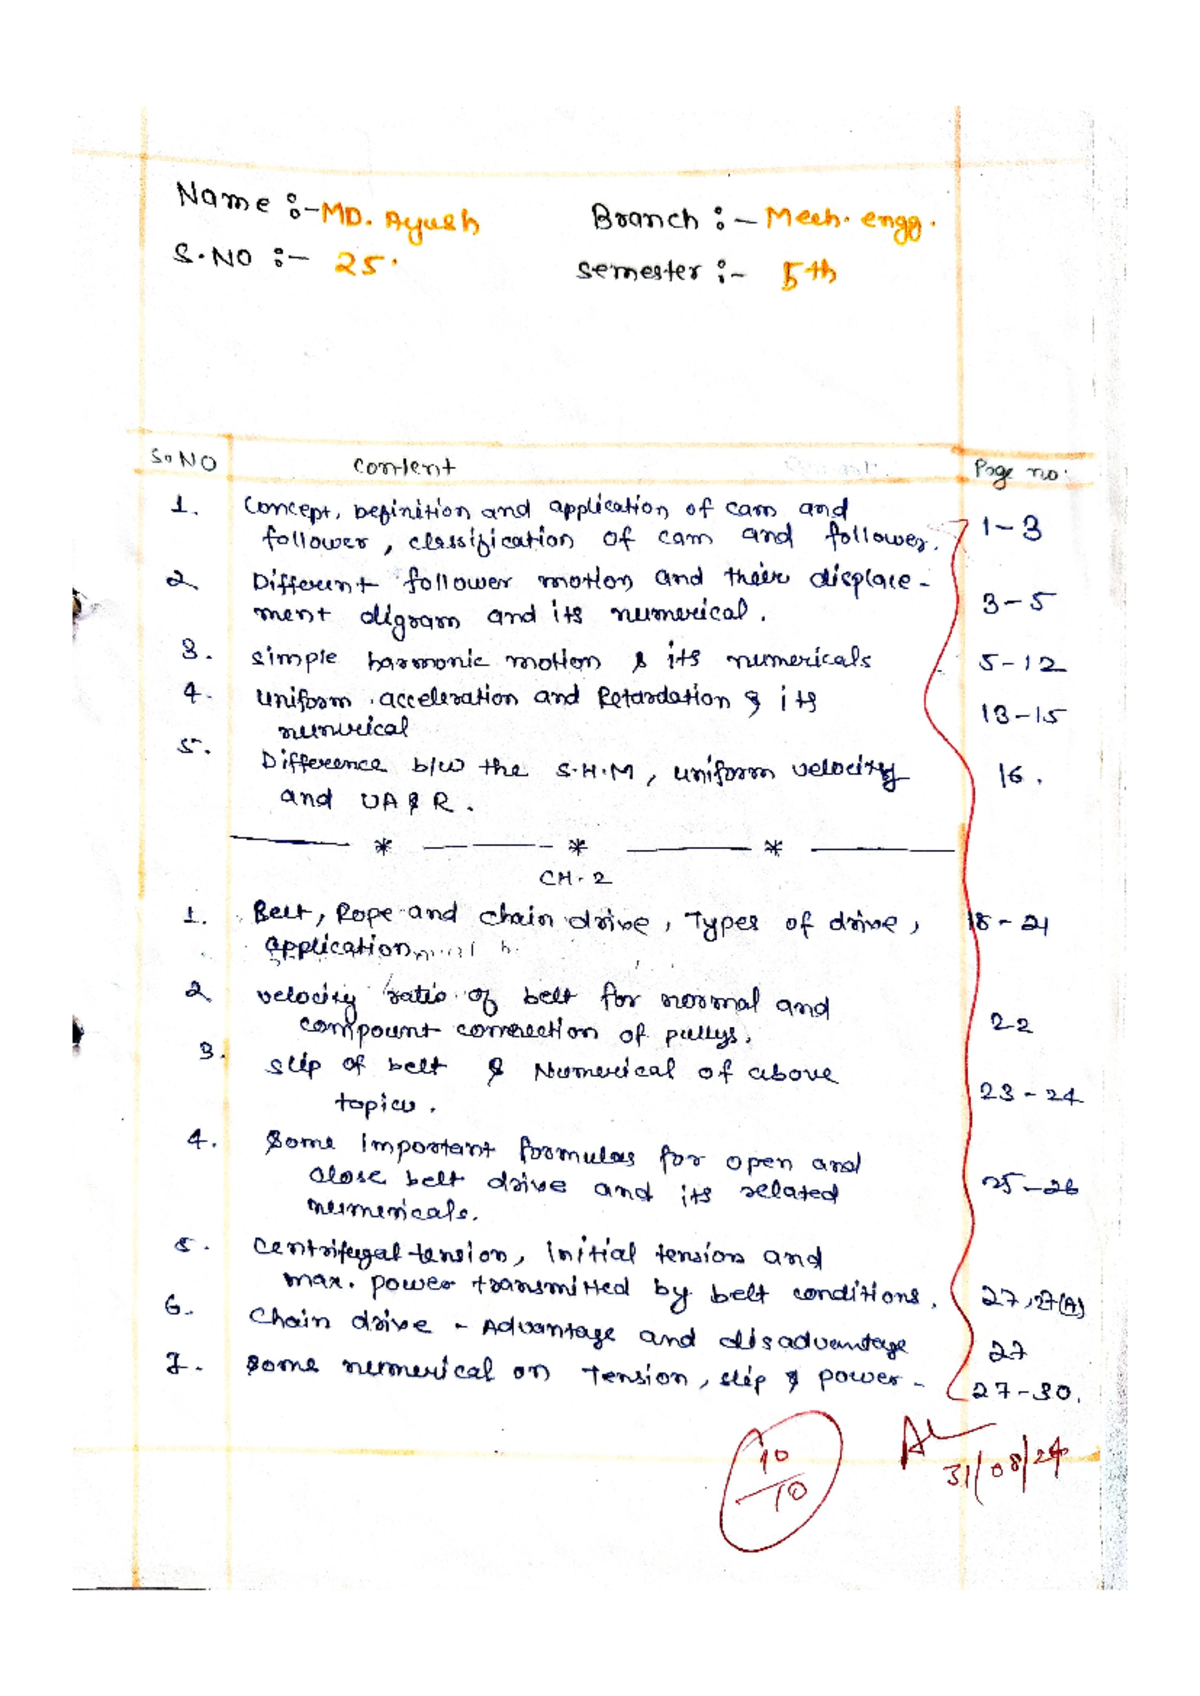 Name :- MD. Ayush
Branch :- Mech. engg.
S.NO :- 25.
Semester :- 5th
S.NO Content Page no:
1. Concept, Definition and application of cam and
follower, classification of cam and follower. 1-3
2. Different follower motion and their displace-
ment digram and its numerical. 3-5
3. simple harmonic motion & its numericals 5-12
4. Uniform acceleration and Retardation & its
numerical 13-15
5. Difference b/w the S.H.M, uniform velocity
and UA & R. 16.
CH-2
1. Belt, Rope and chain drive, Types of drive, 18-21
application
2. velocity ratio of belt for normal and
compount connection of pullys. 22
3. slip of belt & Numerical of above
topics. 23-24
4. Some Important formulas for open and
close belt drive and its related 25-26
numericals.
5. Centrifugal tension, initial tension and
max. power transmitted by belt conditions. 27,27(A)
6. Chain drive - Advantage and disadvantage 27
7. Some numerical on tension, slip & power- 27-30.
10/10
31/08/24